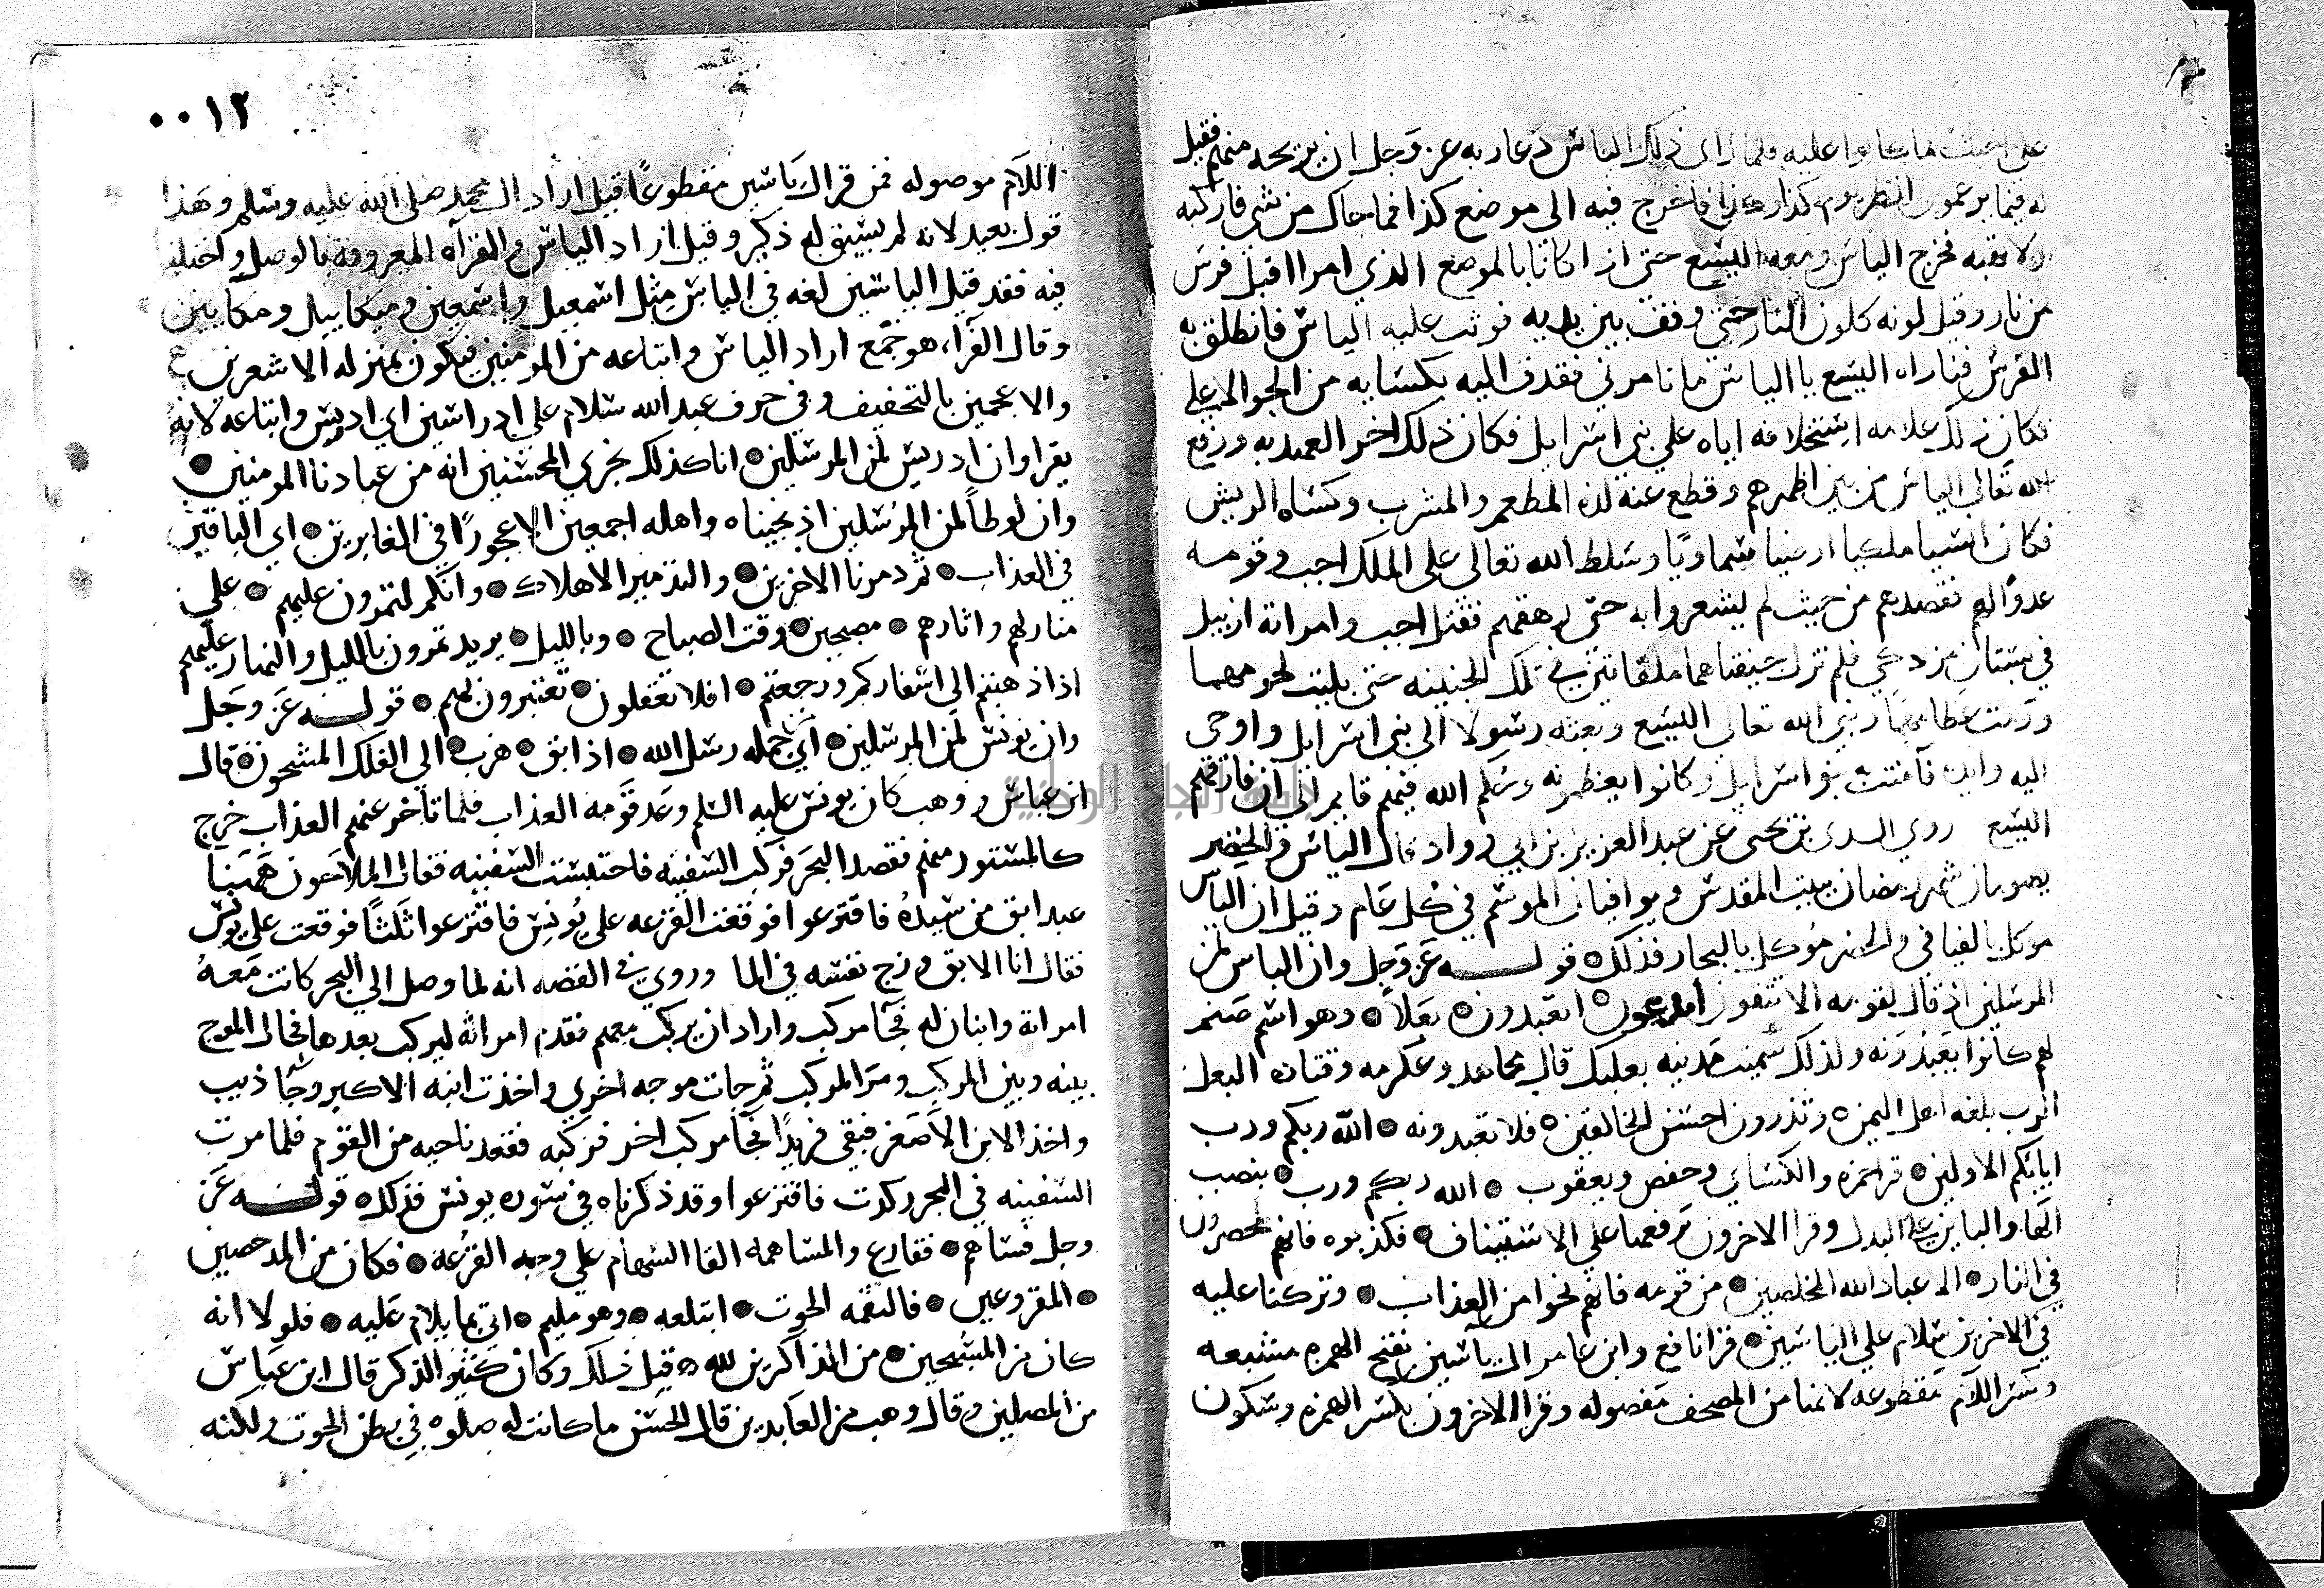 على اخبث ما كانوا عليه فلما راى ذلك الياس دعا ربه عز وجل ان يريحه منهم فقيل
له فيما يزعمون انظر يوم كذا وكذا فاخرج فيه الى موضع كذا فما جاك من شي فاركبه
ولا تهبه فخرج الياس ومعه اليسع حتى اذا كانا بالموضع الذي امرا اقبل فرس
من نار وقيل لونه كلون النار حتى وقف بين يديه فوثب عليه الياس فانطلق به
الفرس فناداه اليسع يا الياس ما تامرني فقذف اليه بكسايه من الجو الاعلى
فكان ذلك علامه استخلافه اياه على بني اسرايل فكان ذلك اخر العهد به ورفع
الله تعالى الياس من بين اظهرهم وقطع عنه لذه المطعم والمشرب وكساه الريش
فكان انسيا ملكيا ارضيا سماويا وسلط الله تعالى على الملك اجب وقومه
عدوا لهم فقصدهم من حيث لم يشعروا به حتى رهقهم فقتل اجب وامراته ازبيل
في بستان مزدكي فلم تزل جيفتاهما ملقاتين في تلك الجنينه حتى بليت لحومهما
ورمت عظامهما ونبى الله تعالى اليسع وبعثه رسولا الى بني اسرايل واوحى
اليه وايده فآمنت به بنو اسرايل وكانوا يعظمونه وحكم الله فيهم قايم الى ان فارقهم
اليسع روى السدى بن يحيى عن عبد العزيز بن ابي رواد قال الياس والخضر
يصومان شهر رمضان ببيت المقدس ويوافيان الموسم في كل عام وقيل ان الياس
موكل بالفيافي والخضر موكل بالبحار فذلك قوله عز وجل وان الياس لمن
المرسلين اذ قال لقومه الا تتقون اتدعون اتعبدون بعلا وهو اسم صنم
لهم كانوا يعبدونه ولذلك سميت مدينه بعلبك قال مجاهد وعكرمه وقتاده البعل
الرب بلغه اهل اليمن وتذرون احسن الخالقين فلا تعبدونه الله ربكم ورب
ابايكم الاولين قرا حمزه والكسائي وحفص ويعقوب الله ربكم ورب بنصب
الها والباين على البدل وقرا الاخرون برفعها على الاستيناف فكذبوه فانهم لمحضرون
في النار الا عباد الله المخلصين من قومه فانهم نجوا من العذاب وتركنا عليه
في الاخرين سلام على الياسين قرا نافع وابن عامر ال ياسين بفتح الهمزه مشبعه
وكسر اللام مقطوعه لانها من المصحف مفصوله وقرا الاخرون بكسر الهمزه وسكون
٠٠١٢
اللام موصوله فمن قرا ال ياسين مقطوعا قيل اراد ال محمد صلى الله عليه وسلم وهذا
قول بعيد لانه لم يسبق له ذكر وقيل اراد الياس والقراه المعروفه بالوصل واختلف
فيه فقد قيل الياسين لغه في الياس مثل اسمعيل واسمعين وميكاييل وميكايين
وقال الفرا هو جمع اراد الياس واتباعه من المومنين فيكون بمنزله الاشعرين
والاعجمين بالتخفيف وفي حرف عبد الله سلام على ادراسين اي ادريس واتباعه لانه
يقرا وان ادريس لمن المرسلين انا كذلك نجزي المحسنين انه من عبادنا المومنين
وان لوطا لمن المرسلين اذ نجيناه واهله اجمعين الا عجوزا في الغابرين اي الباقين
في العذاب ثم دمرنا الاخرين والتدمير الاهلاك وانكم لتمرون عليهم على
منازلهم واثارهم مصبحين وقت الصباح وبالليل يريد تمرون بالليل والنهار عليهم
اذا ذهبتم الى اسفاركم ورجعتم افلا تعقلون تعتبرون بهم قوله عز وجل
وان يونس لمن المرسلين اي من جمله رسل الله اذ ابق هرب الى الفلك المشحون قال
ابن عباس ووهب كان يونس عليه السلم وعد قومه العذاب فلما تاخر عنهم العذاب خرج
كالمستور منهم فقصد البحر فركب السفينه فاحتبست السفينه فقال الملاحون ههنا
عبد ابق من سيده فاقترعوا فوقعت القرعه على يونس فاقترعوا ثلثا فوقعت على يونس
فقال انا الابق وزج نفسه في الما وروي في القصه انه لما وصل الى البحر كانت معه
امراته وابنان له فجا مركب واراد ان يركب معهم فقدم امراته ليركب بعدها فحال الموج
بينه وبين المركب ومر المركب ثم جات موجه اخرى واخذت ابنه الاكبر وجا ذيب
واخذ الابن الاصغر فبقي فريدا فجا مركب اخر فركبه فقعد ناحيه من القوم فلما مرت
السفينه في البحر ركدت فاقترعوا وقد ذكرناه في سوره يونس فذلك قوله عز
وجل فساهم فقارع والمساهمه القا السهام على وجه القرعه فكان من المدحضين
المقروعين فالتقمه الحوت ابتلعه وهو مليم اتى بما يلام عليه فلولا انه
كان من المسبحين من الذاكرين لله قبل ذلك وكان كثير الذكر قال ابن عباس
من المصلين وقال وهب من العابدين قال الحسن ما كانت له صلوه في بطن الحوت ولكنه